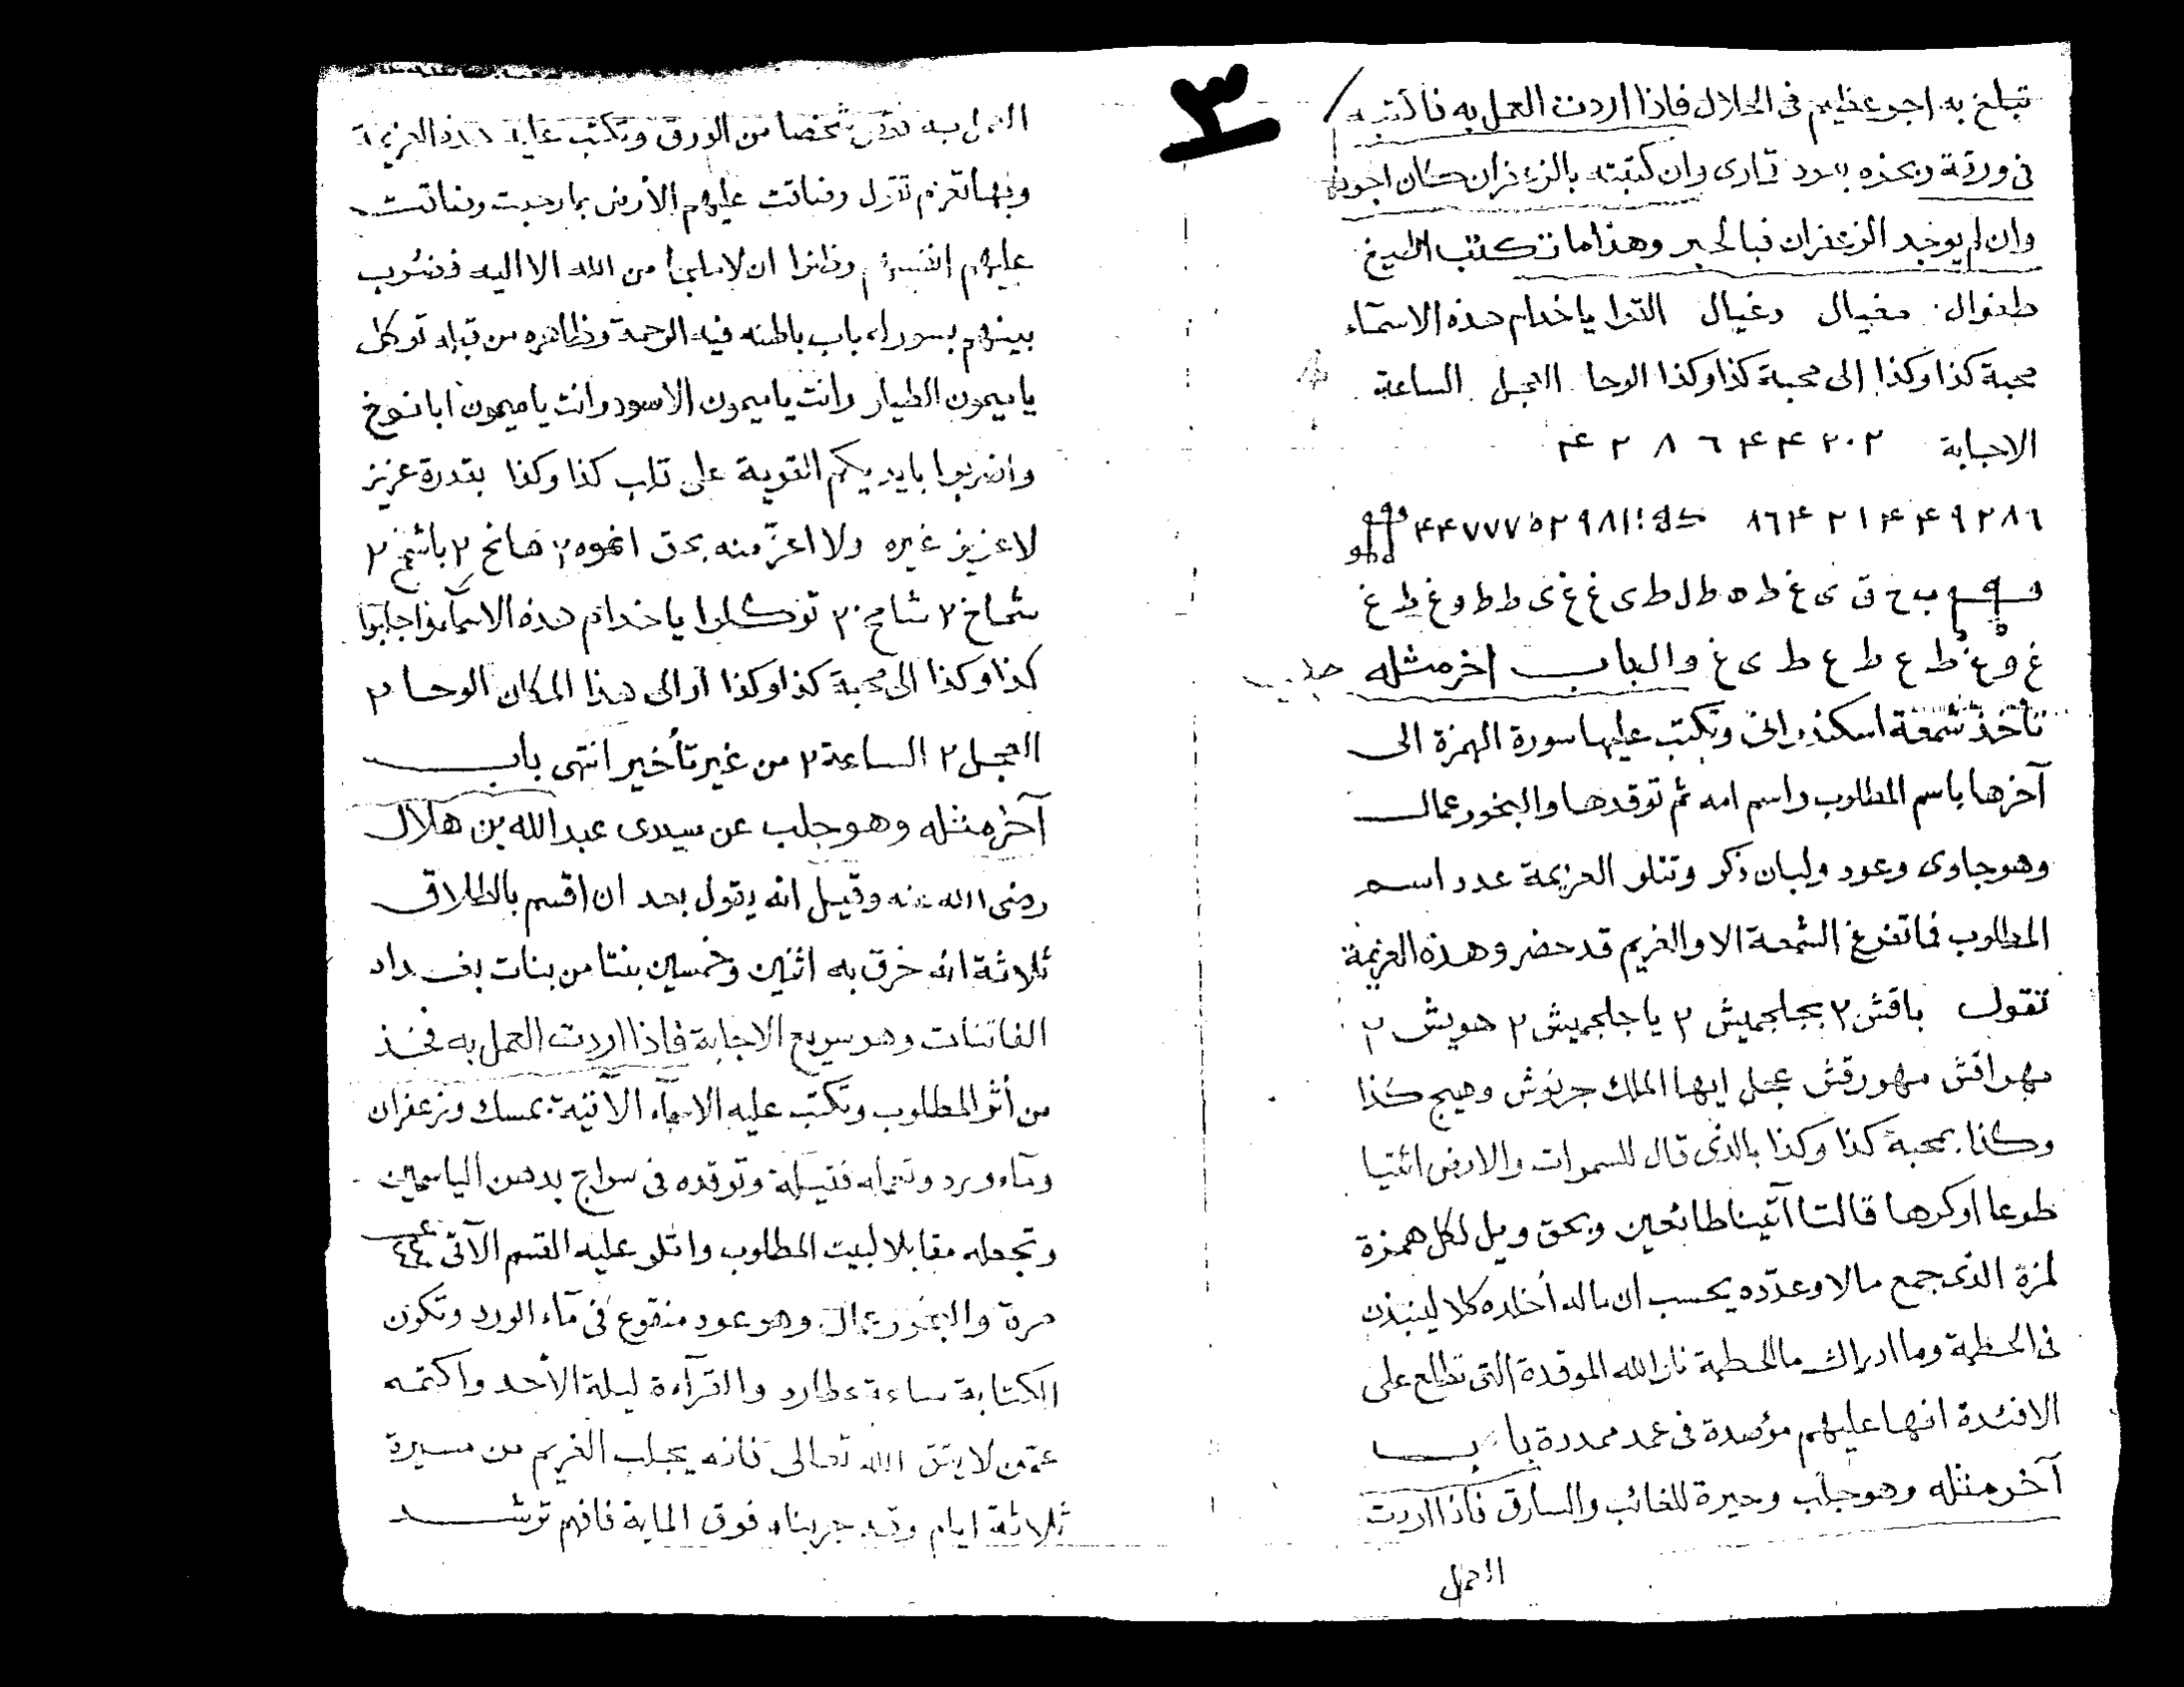 ٣
تبلغ به اجر عظيم فى الحلال فاذا اردت العمل به فاكتبه
فى ورقة وبخره بعود قمارى وان كتبته بالزعفران كان اجود
وان لم يوجد الزعفران فبالحبر وهذا ما تكتب
طغوال مغيال دغيال يا خدام هذه الاسمآء
محبة كذا وكذا إلى محبة كذا وكذا الوحا العجل الساعة
الاجابة ٢٠٢ ۴ ۴ ٦ ٨ ٢ ۴
غ و غ ط ع ط ع ط ى غ والباب اخر مثله جلب
تأخذ شمعة اسكندرانى وتكتب عليها سورة الهمزة الى
آخرها باسم المطلوب واسم امه ثم توقدها والبخور عمال
وهو جاوى وعود ولبان ذكر وتتلو العزيمة عدد اسم
المطلوب فما تفرغ الشمعة الا والغريم قد حضر وهذه العزيمة
تقول باقش ٢ بجلجميش ٢ يا جلجميش ٢ هويش ٢
مهراقش مهورقش عجل ايها الملك وهيج كذا
وكذا بمحبة كذا وكذا بالذى قال للسموات والارض ائتيا
طوعا اوكرها قالتا آتينا طائعين وبحق ويل لكل همزة
لمزة الذى جمع مالا وعدّده يحسب ان ماله أخلده كلا لينبذن
فى الحطمة وما ادراك ما الحطمة نار الله الموقدة التى تطلع على
الافئدة انها عليهم مؤصدة فى عمد ممددة باب
آخر مثله وهو جلب وحيرة للغائب والسارق فاذا اردت
العمل
العمل به تقص شخصا من الورق وتكتب عليه هذه العزيمة
وبها تعزم تقول وضاقت عليهم الأرض بما رحبت وضاقت
عليهم انفسهم وظنوا ان لا ملجأ من الله الا اليه فضرب
بينهم بسور له باب باطنه فيه الرحمة وظاهره من قبله توكل
يا ميمون الطيار وانت يا ميمون الاسود وانت يا ميمون ابا نوخ
واضربوا بايديكم القوية على قلب كذا وكذا بقدرة عزيز
لا عزيز غيره ولا اعزّ منه بحق ٢ ٢ باشمخ ٢
شماخ ٢ شامخ ٢ توكلوا يا خدام هذه الاسمآء واجلبوا
كذا وكذا الى محبة كذا وكذا او الى هذا المكان الوحا ٢
العجل ٢ الساعة ٢ من غير تأخير انتهى باب
آخر مثله وهو جلب عن سيدى عبد الله بن هلال
رضى الله عنه وقيل انه يقول بعد ان اقسم بالطلاق
ثلاثة انه خرق به اثنين وخمسين بنتا من بنات بغداد
الفاتنات وهو سريع الاجابة فاذا اردت العمل به فخذ
من أثر المطلوب وتكتب عليه الاسمآء الآتية بمسك وزعفران
ومآء ورد وتعمله فتيلة وتوقده فى سراج بدهن الياسمين
وتجعله مقابلا لبيت المطلوب واتلو عليه القسم الآتى
مرة والبخور عمال وهو عود منقوع فى مآء الورد وتكون
الكتابة ساعة عطارد والقرآءة ليلة الأحد واكتمه
عمن لا يتق الله تعالى فانه يجلب الغريم من مسيرة
ثلاثة ايام وقد جربناه فوق الماية فافهم ترشد